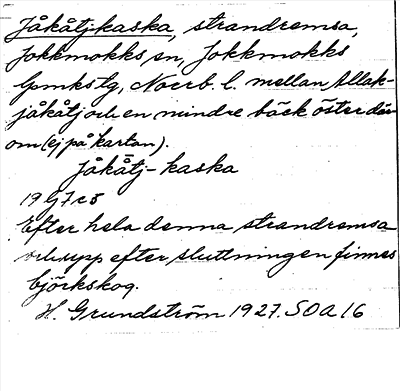 Jåkåtj-kaska, strandremsa,
Jokkmokks sn, Jokkmokks
lpmkstg, Norrb. l. mellan Allak-
jåkåtj och en mindre bäck öster där-
om (ej på kartan).
jåkåtj-kaska
19 G7c5
Efter hela denna strandremsa
och upp efter sluttningen finnes
björkskog.
H. Grundström 1927. SOA 16